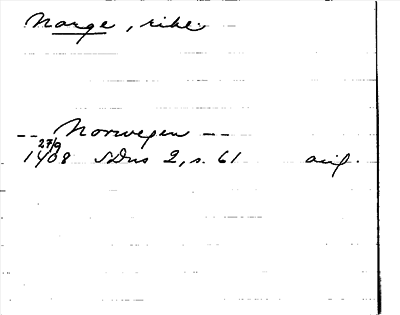 Norge, rike
-- Norwegen --
27/9
1408 SDns 2, s. 61 avs.